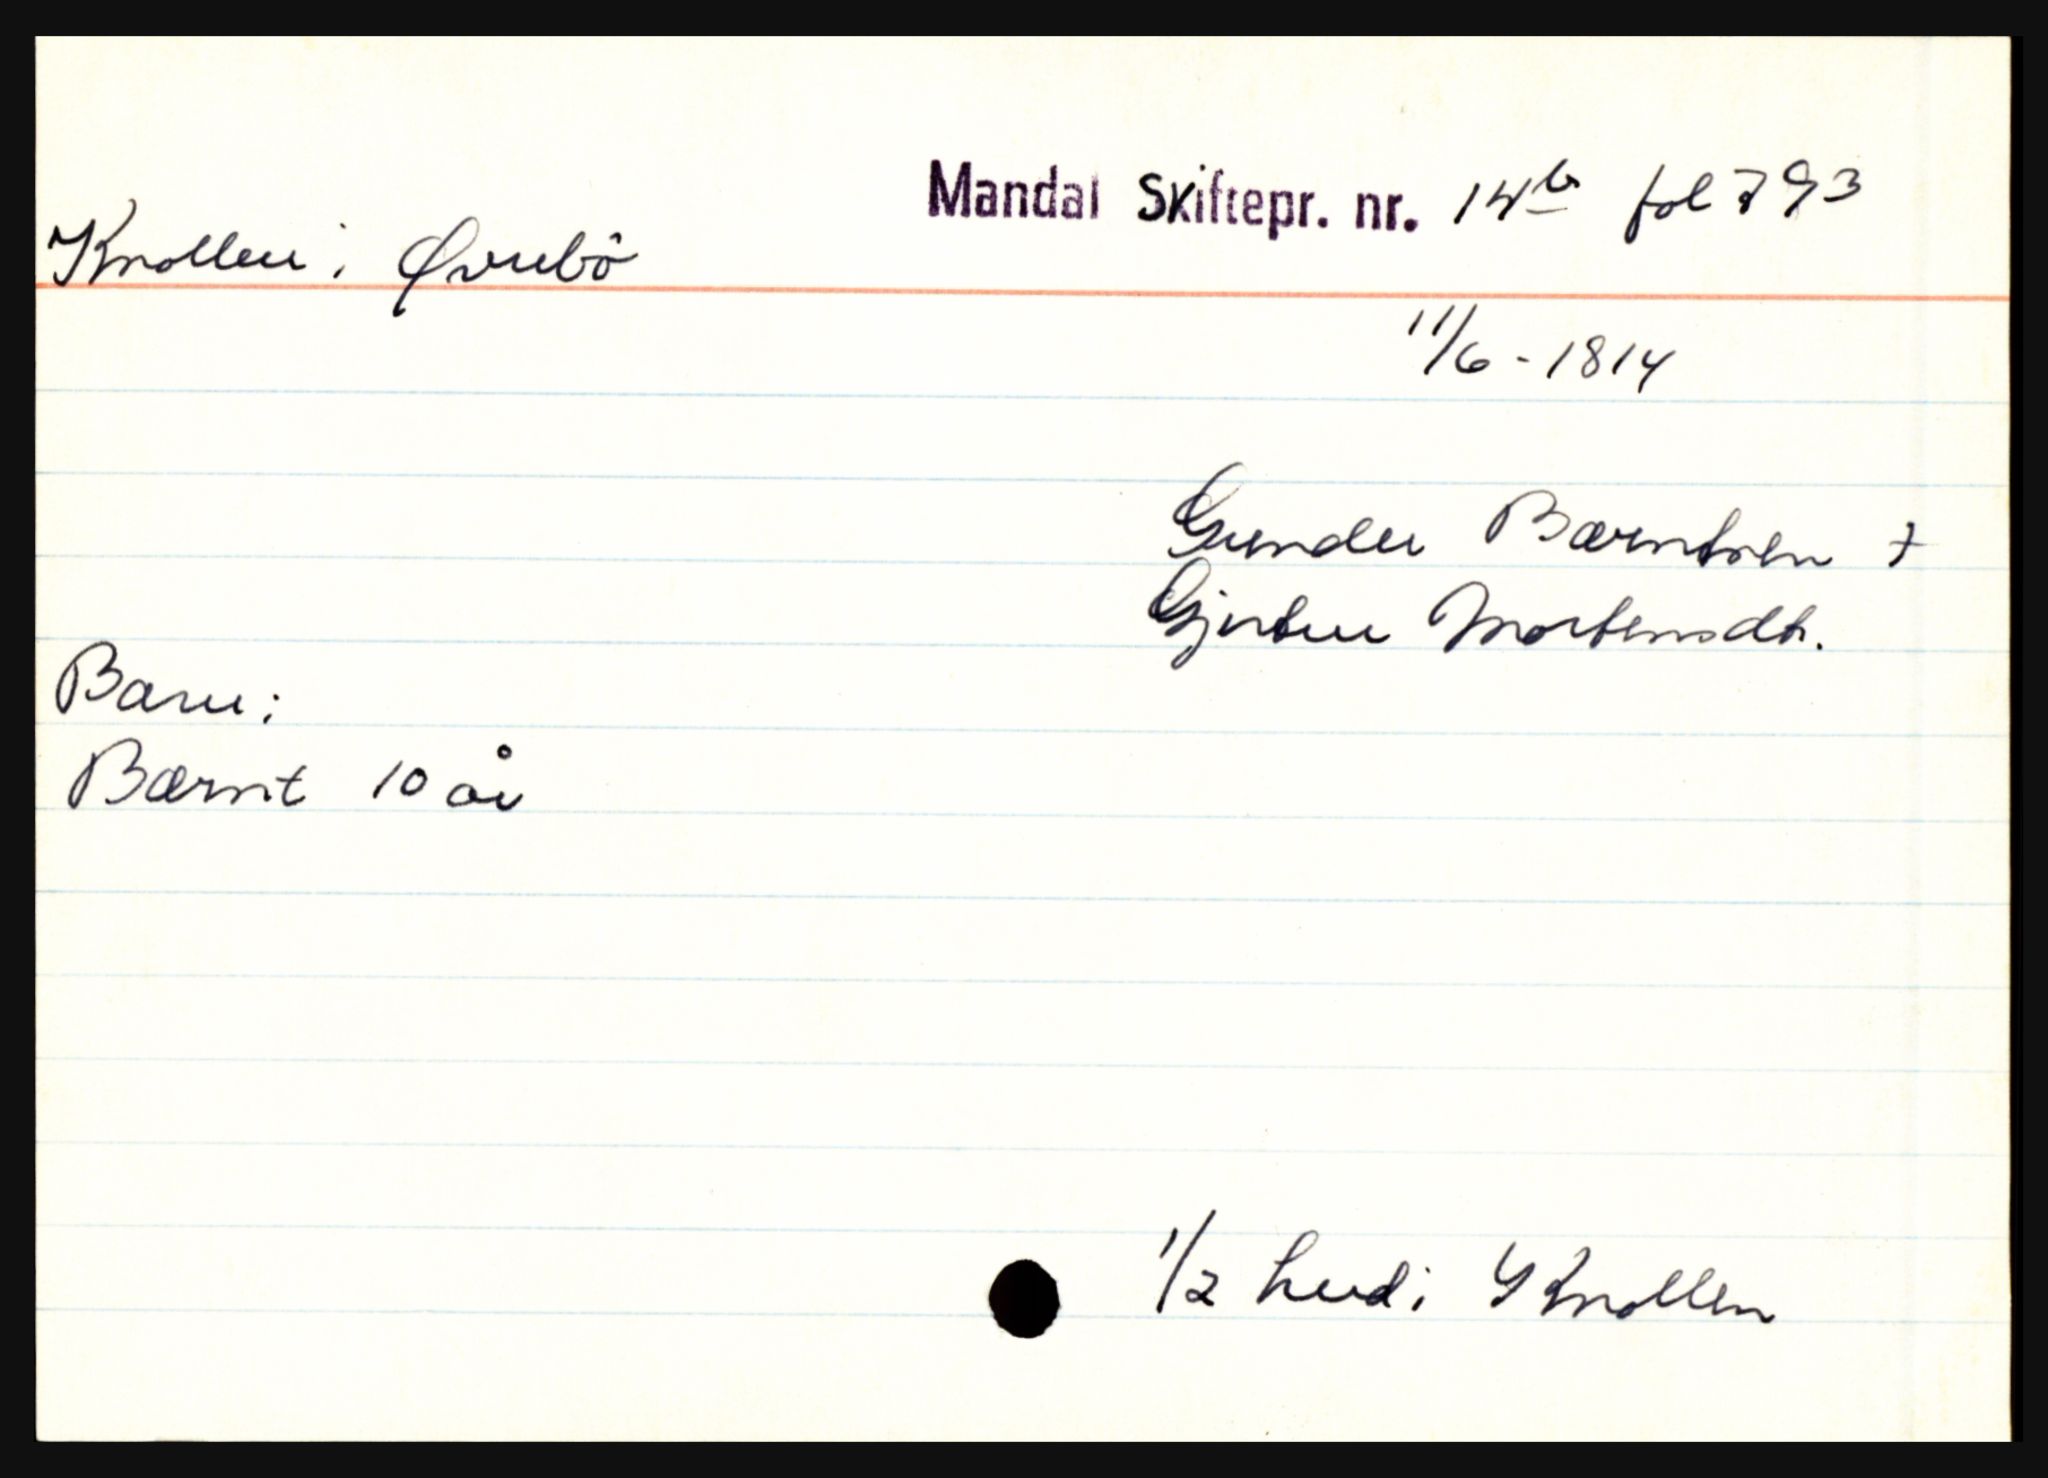 Mandal Skiftepr. nr. 14b fol 793
Knollen i Øvrebö
11/6 - 1814
Gunder Bærntsen †
Gjertru Mortensdtr.
Barn:
Bærnt 10 år
1/2 hud i Knollen